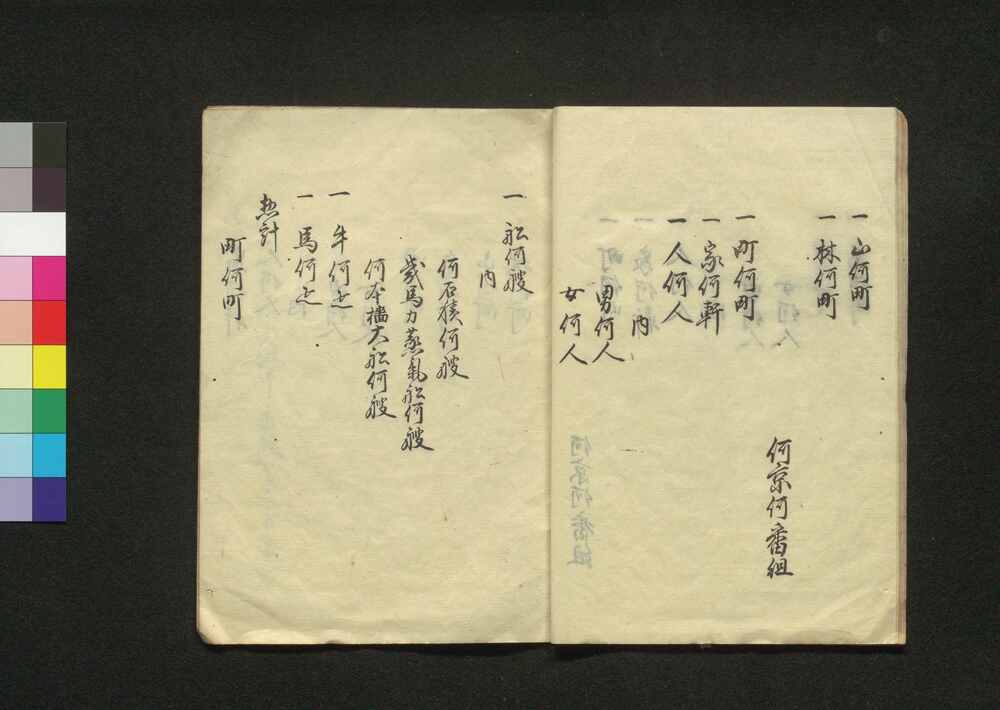 一 山何町
一 林何町
何京何番組
一 町何町
一 家何軒
一 人何人
内
男何人
女何人
一 舩何艘
内
何石積何艘
幾馬力蒸氣舩何艘
何本檣大舩何艘
一 牛何疋
一 馬何疋
惣計
町何町